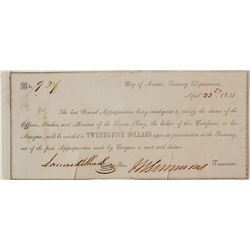 No. 997 City of Austin, Treasury Department,
April 23rd 1841
The last Naval Appropriation being inadequate to satisfy the claims of the
Officers, Sailors and Marines of the Texian Navy, the holder of this Certificate, or his
Assignee, will be entitled to TWENTY-FIVE DOLLARS upon its presentation at the Treasury,
out of the first Appropriation made by Congress to meet said claims.
James H. Shad Simmons Treasurer.